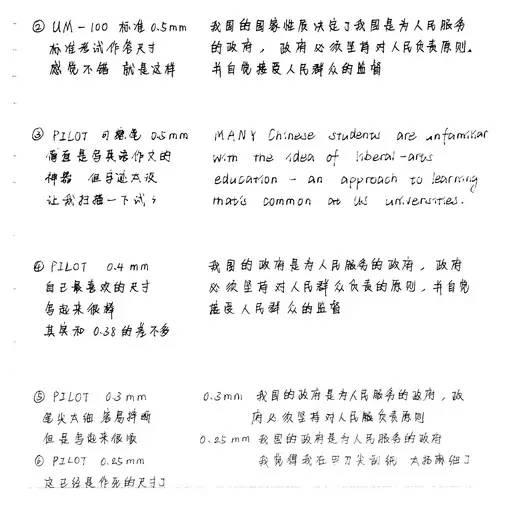 ② UM-100 标准 0.5mm
标准考试作答尺寸
感觉不错 就是这样
我国的国家性质决定了我国是为人民服务
的政府，政府必须坚持对人民负责原则。
并自觉接受人民群众的监督
③ PILOT 可擦笔 0.5mm
简直是写英语作文的
神器 但字迹太浅
让我扫描一下试
MANY Chinese students are unfamiliar
with the idea of liberal-arts
education - an approach to learning
that's common at US universities.
④ PILOT 0.4 mm
自己最喜欢的尺寸
写起来很
其实和 0.38 的差不多
我国的政府是为人民服务的政府，政府
必须坚持对人民群众负责的原则，并自觉
接受人民群众的监督
⑤ PILOT 0.3 mm
笔尖太细 容易摔断
但是写起来很
0.3mm 我国的政府是为人民服务的政府，政
府必须坚持对人民服负责原则
⑥ PILOT 0.25mm
这已经是作死的尺寸了
0.25mm 我国的政府是为人民服务的政府
我觉得我在用刀尖刮纸 太